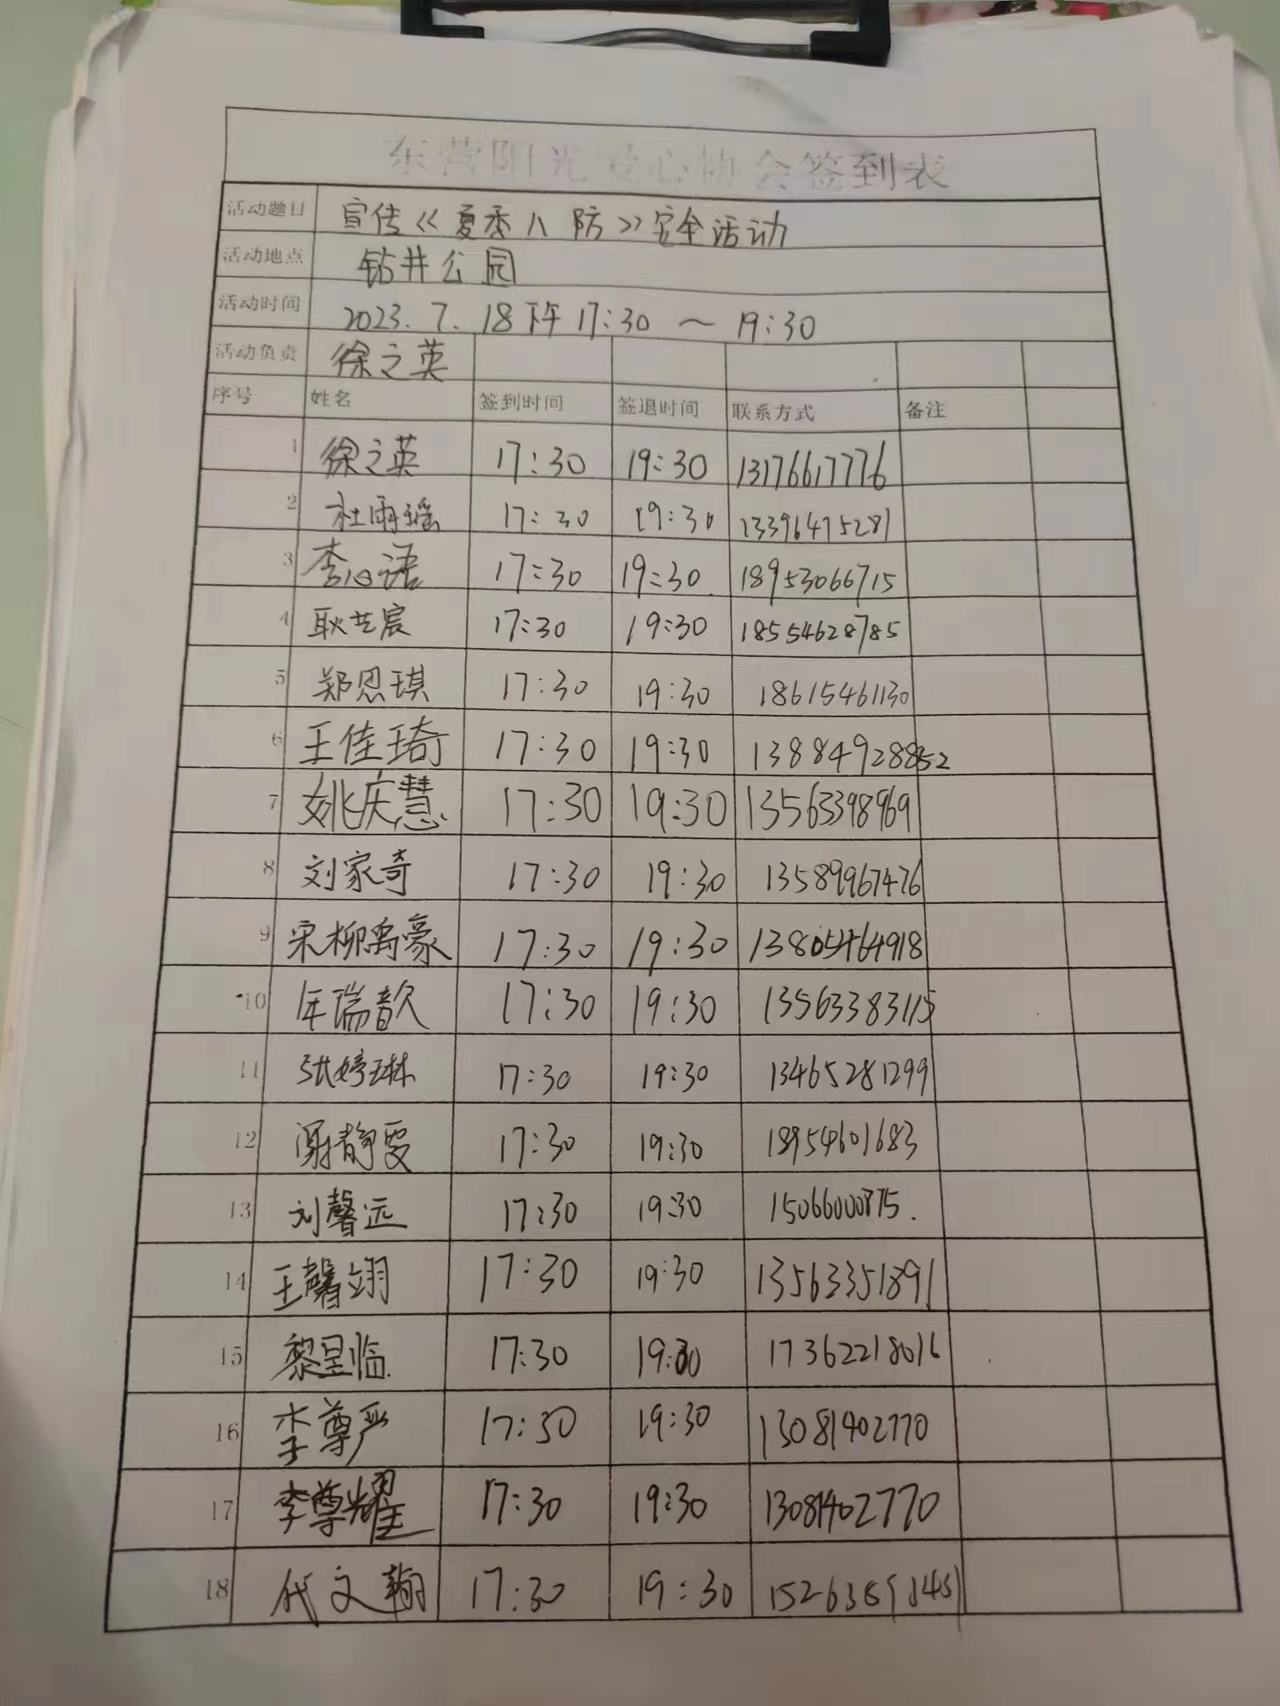 东营阳光爱心协会签到表
活动题目 宣传《夏季八防》安全活动
活动地点 钻井公园
活动时间 2023.7.18下午17:30～19:30
活动负责 徐之英
序号 姓名 签到时间 签退时间 联系方式 备注
1 徐之英 17:30 19:30 13176617776
2 杜雨瑶 17:30 19:30 13396475281
3 李心语 17:30 19:30 18953066715
4 耿艺宸 17:30 19:30 18554628785
5 郑恩琪 17:30 19:30 18615461130
6 王佳琦 17:30 19:30 13884928852
7 姚庆慧 17:30 19:30 13563398969
8 刘家奇 17:30 19:30 13589967476
9 宋柳禹豪 17:30 19:30 13805464918
10 年瑞歆 17:30 19:30 13563383115
11 张婷琳 17:30 19:30 13465281299
12 谢静雯 17:30 19:30 18954601683
13 刘馨远 17:30 19:30 15066000875.
14 王馨翊 17:30 19:30 13563351891
15 黎星临 17:30 19:30 17362218016
16 李尊严 17:30 19:30 13081402770
17 李尊耀 17:30 19:30 13081402770
18 代文翰 17:30 19:30